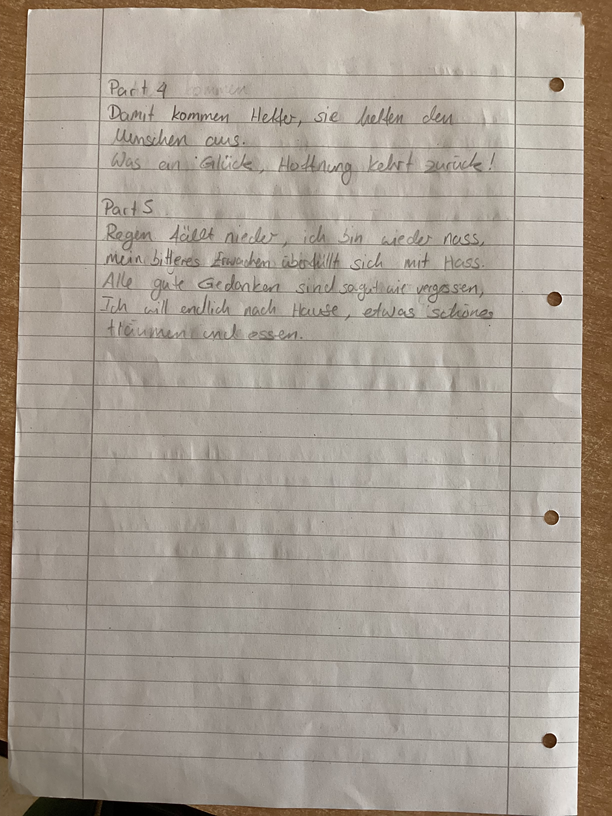 Part 4 kommen
Damit kommen Helfer, sie helfen den
Menschen aus.
Was ein Glück, Hoffnung kehrt zurück!
Part 5
Regen fällt nieder, ich bin wieder nass,
mein bitteres Erwachen überfüllt sich mit Hass.
Alle gute Gedanken sind so gut wie vergessen,
Ich will endlich nach Hause, etwas schönes
träumen und essen.